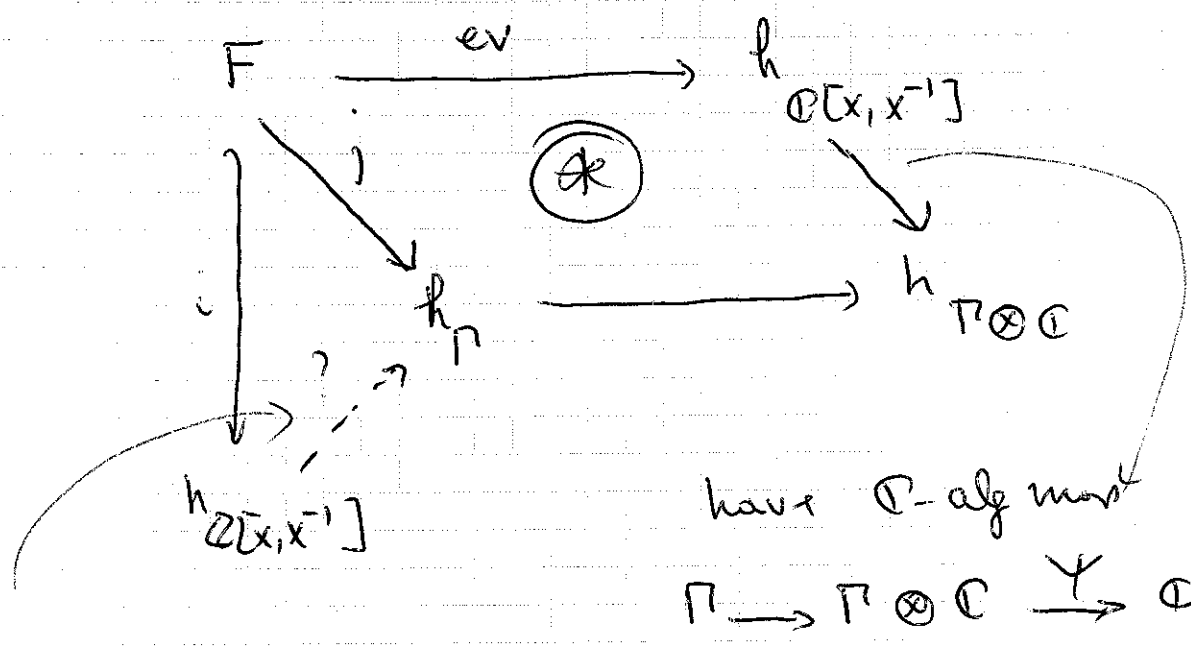 F ev h_{ℂ[x,x^{-1}]}
j ⊛
i h_Γ h_{Γ⊗ℂ}
?
h_{ℤ[x,x^{-1}]} have ℂ-alg
Γ → Γ⊗ℂ Ψ→ ℂ